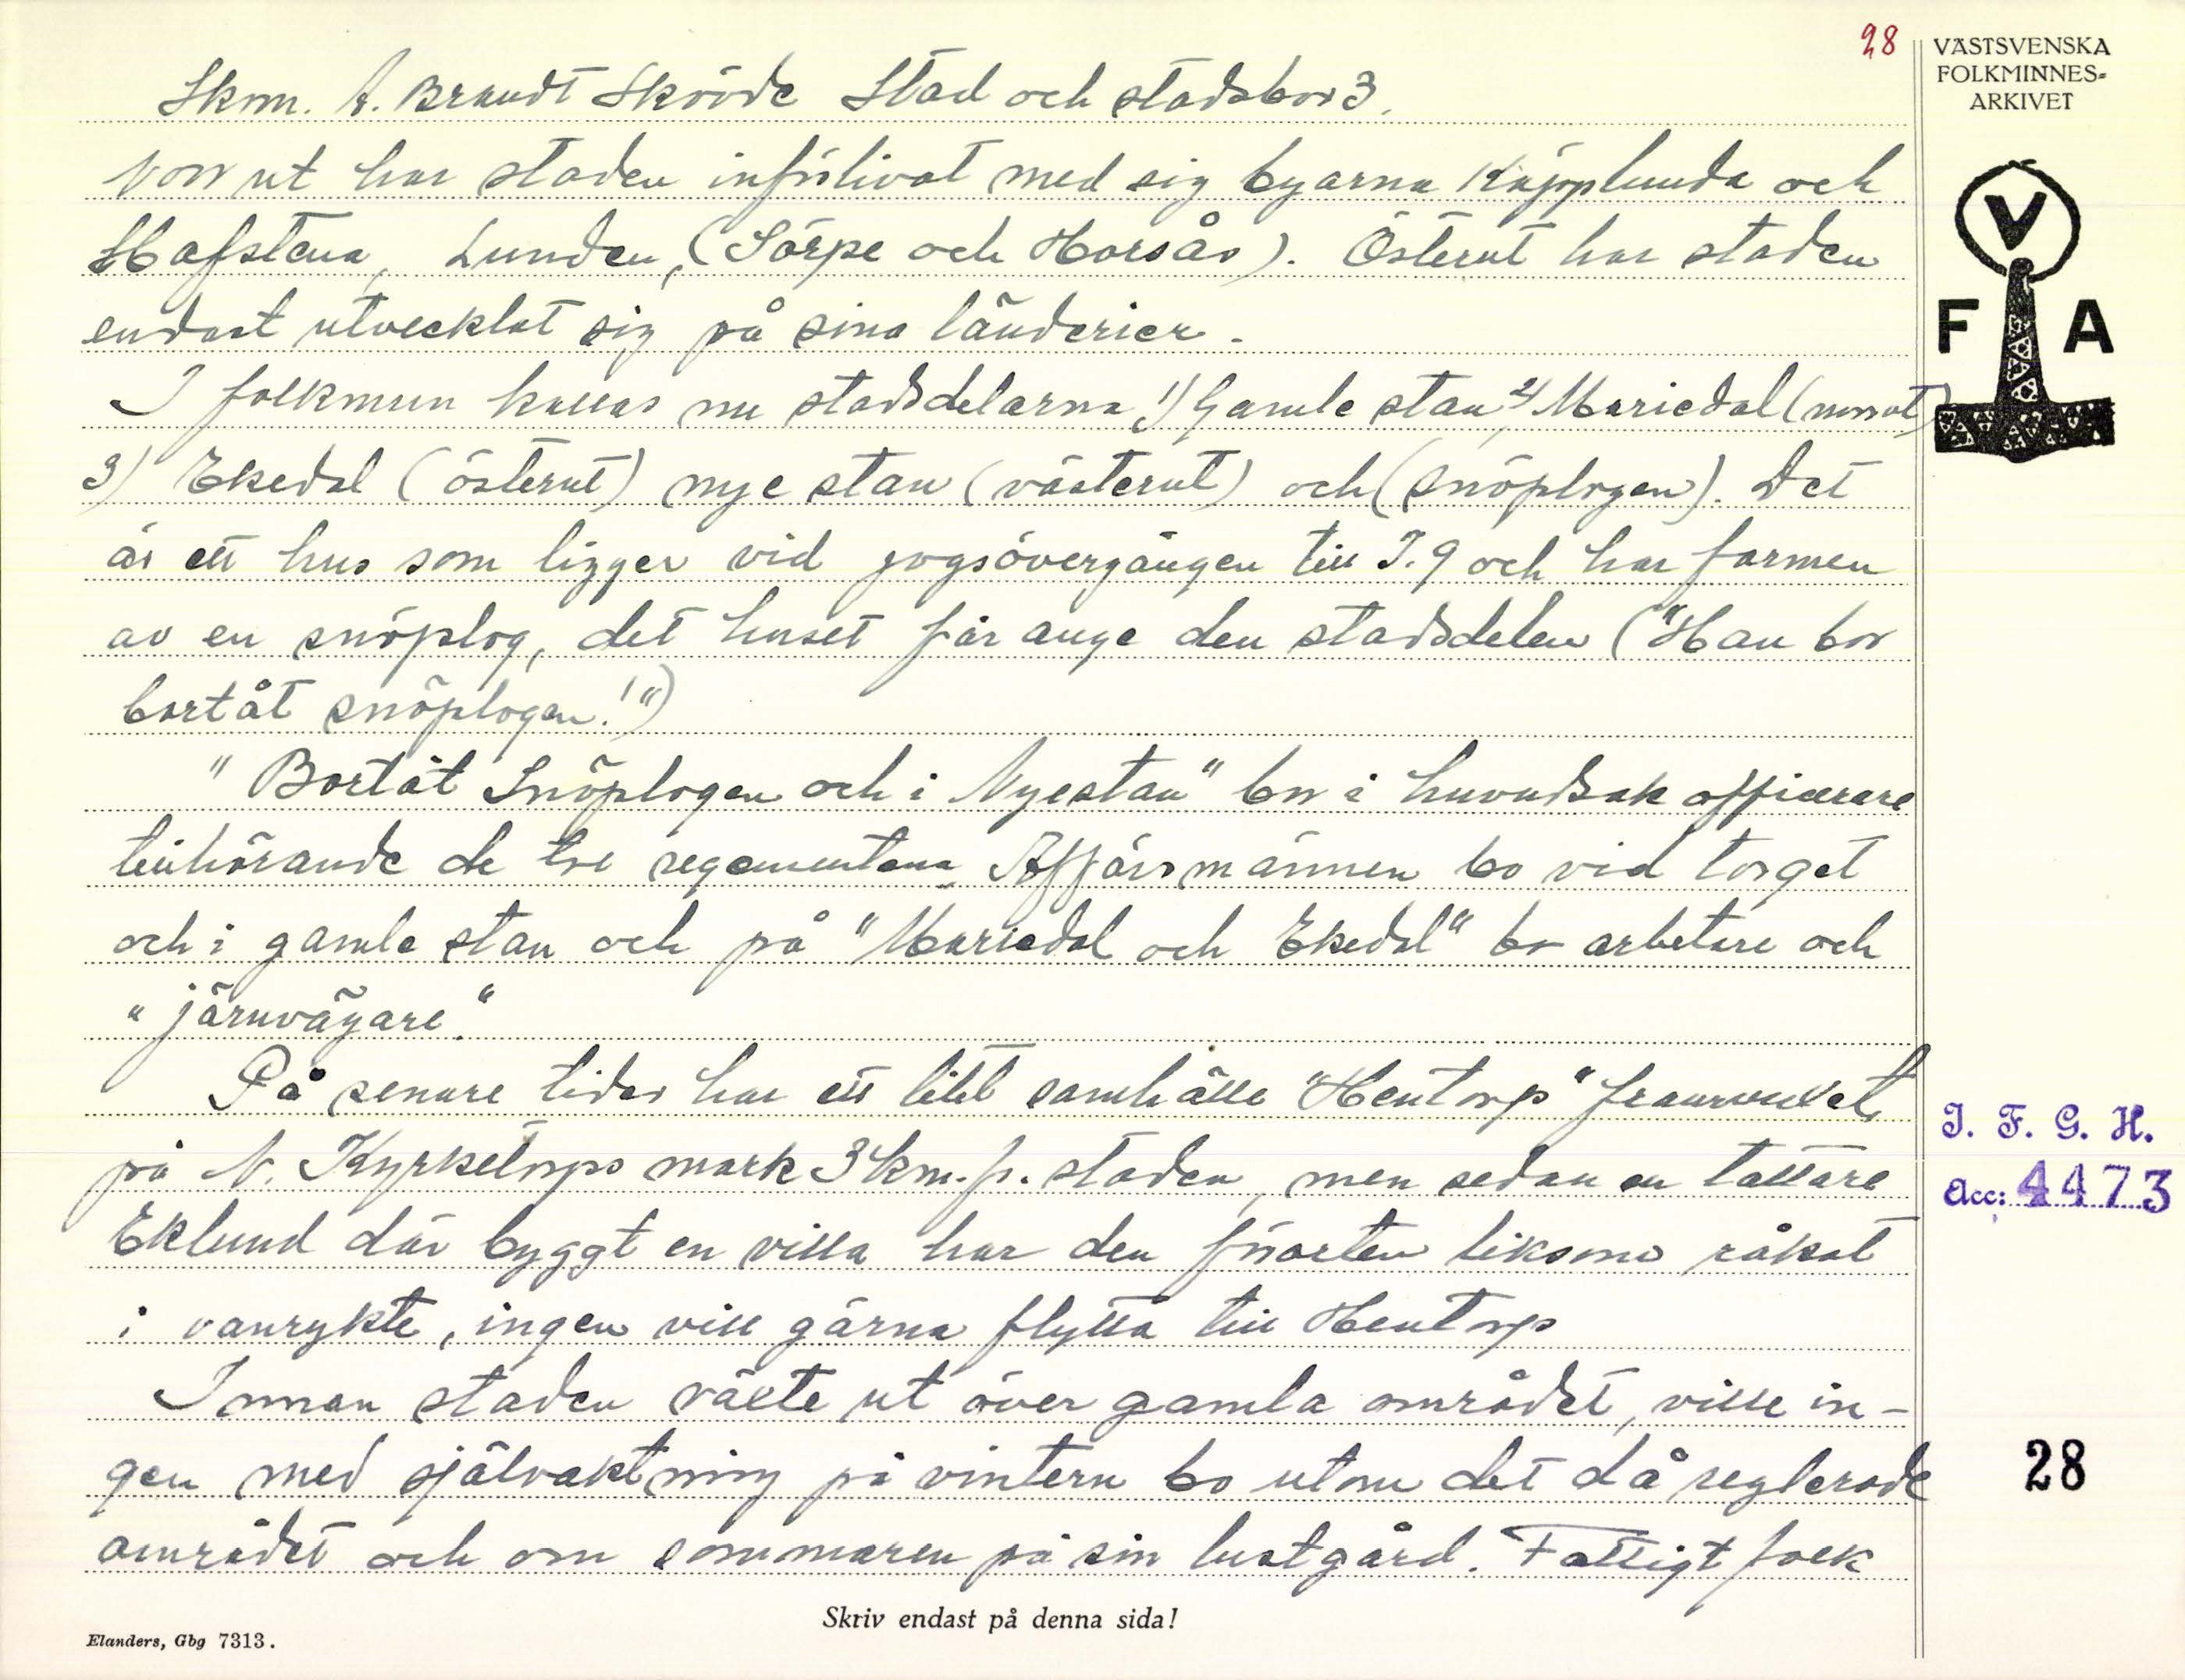 28
VÄSTSVENSKA
FOLKMINNES-
ARKIVET
Skm. A. Brandt Skövde Stad och stadsbor 3.
norrut har staden införlivat med sig byarna Käpplunda och
Hafstena, Lunden, (Sörpe och Horsås). Österut har staden
endast utvecklat sig på sina länderier.
I folkmun kallas nu stadsdelarna 1) Gamle stan 2) Mariedal (norrut)
3) Ekedal (österut) nye stan (västerut) och (snöplogen). Det
är ett hus som ligger vid jvgsövergången till I.9 och har formen
av en snöplog, det huset får ange den stadsdelen ("Han bor
bortåt snöplogen!")
"Bortåt Snöplogen och i Nyestan" bor i huvudsak officerare
tillhörande de tre regementena. Affärsmännen bo vid torget
och i gamle stan och på "Mariedal och Ekedal" bo arbetare och
"järnvägare."
På senare tider har ett litet samhälle "Hentorp" framvuxet
på N. Kyrketorps mark 3 km. fr. staden, men sedan en tattare
Eklund där byggt en villa har den förorten liksom råkat
i vanrykte, ingen vill gärna flytta till Hentorp
Innan staden växte ut över gamla området, ville in-
gen med självaktning på vintern bo utom det då reglerade
området och om sommaren på sin lustgård. Fattigt folk
V
F A
I. F. G. H.
Acc: 4473
28
Skriv endast på denna sida!
Elanders, Gbg 7313.